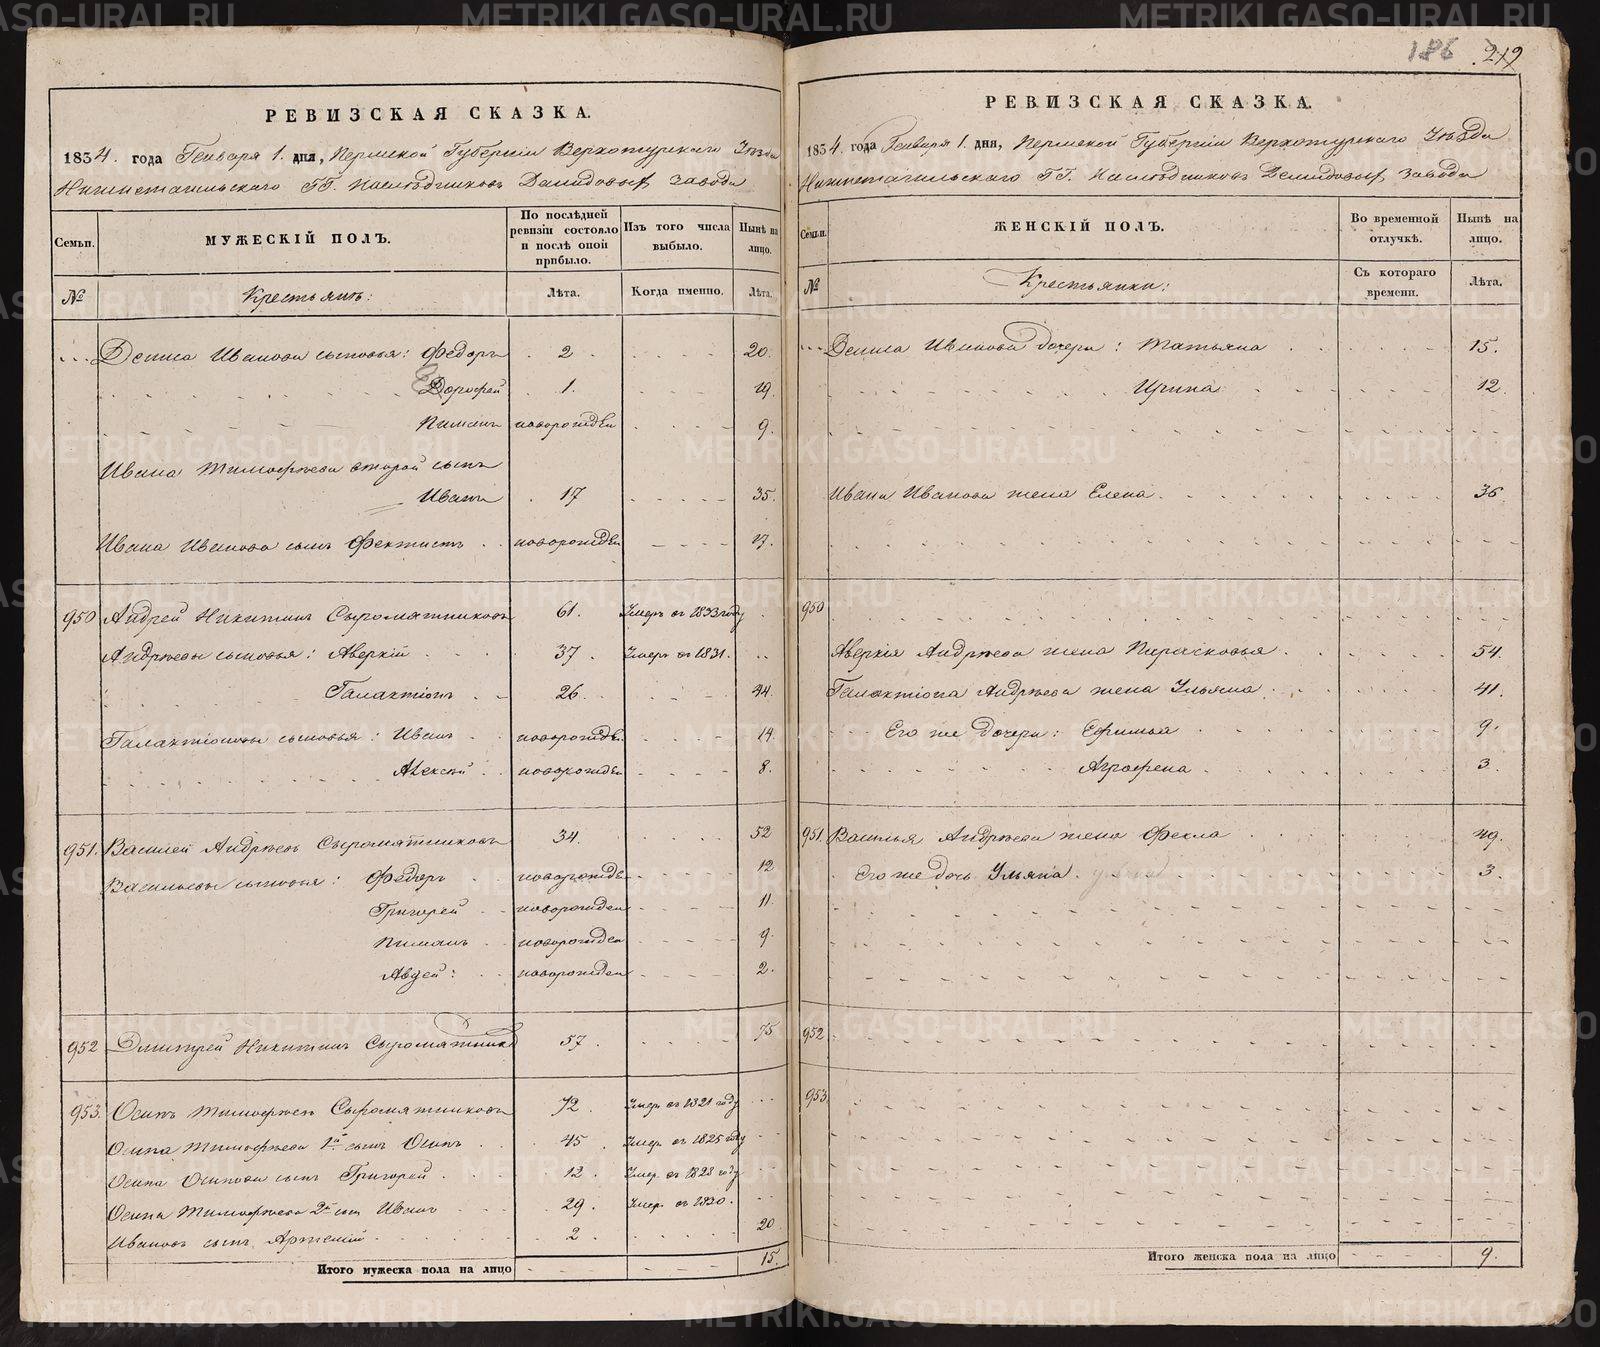 186 212
РЕВИЗСКАЯ СКАЗКА.
1834. года Генваря 1. дня, Пермской Губернiи Верхотурскаго Уѣзда
Нижнетагильскаго ГГ. Наслѣдниковъ Демидовыхъ завода
Семьи.
МУЖЕСКІЙ ПОЛЪ.
По послѣдней ревизіи состояло и послѣ оной прибыло.
Изъ того числа выбыло.
Нынѣ на лицо.
№
Крестьянъ:
Лѣта.
Когда именно.
Лѣта.
Дениса Иванова сыновья: Федоръ 2 20.
Дорофей 1. 19.
Пиманъ новорожден 9.
Ивана Тимофѣева второй сынъ
Иванъ 17 35.
Ивана Иванова сынъ Фектистъ новорожден 17.
950 Андрей Никитинъ Сыромятниковъ 61. Умеръ въ 1833 году
Андрѣевы сыновья: Аверкій 37. Умеръ въ 1831.
Галактіонъ 26. 44.
Галактіоновы сыновья: Иванъ новорожде. 14.
Алексѣй новорожден 8.
951. Василей Андрѣевъ Сыромятниковъ 34. 52
Васильевы сыновья: Федоръ новорожде 12
Григорей новорожден 11.
Пиманъ новорожден 9.
Авдей: новорожден 2.
952 Дмитрей Никитинъ Сыромятник 57. 75
953. Осипъ Тимофѣевъ Сыромятниковъ 72. Умер. въ 1821 году
Осипа Тимофѣева 1й сынъ Осипъ 45. Умер. въ 1825 году
Осипа Осипова сынъ Григорей 12. Умер. въ 1828 году
Осипа Тимофѣева 2й сын Иванъ 29. Умер. въ 1830.
Ивановъ сынъ Артемій 2. 20
Итого мужеска пола на лицо 15.
РЕВИЗСКАЯ СКАЗКА.
1834. года Генваря 1. дня, Пермской Губернiи Верхотурскаго Уѣзда
Нижнетагильскаго ГГ. Наслѣдниковъ Демидовыхъ завода
Семьи.
ЖЕНСКІЙ ПОЛЪ.
Во временной отлучкѣ.
Нынѣ на лицо.
№
Крестьянки:
Съ котораго времени.
Лѣта.
Дениса Иванова дочери: Татьяна 15.
Ирина 12
Ивана Иванова жена Елена 36
950
Аверкія Андрѣева жена Парасковья 54.
Галактіона Андрѣева жена Ульяна 41.
Его же дочери: Ефимья 9.
Аграфена 3.
951. Василья Андрѣева жена Фекла 49.
Его же дочь Ульяна. 3.
952
953.
Итого женска пола на лицо 9.
METRIKI.GASO-URAL.RU